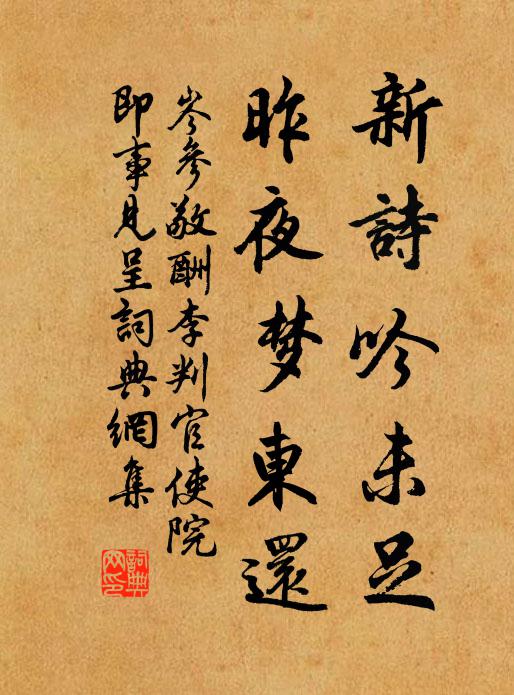 新詩吟未足
昨夜梦東還
岑參敬酬李判官使院
即事見呈詞典網集
詞典網印